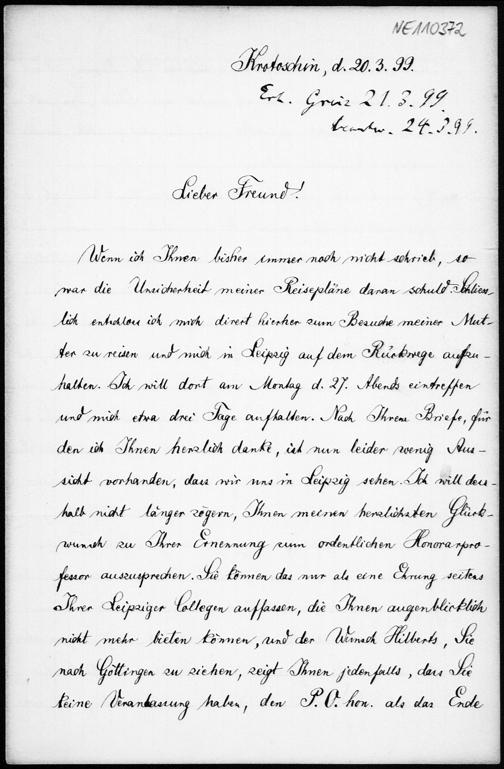 NE110372
Krotoschin, d. 20.3.99.
Erh. Greiz 21.3.99.
beantw. 24.3.99.
Lieber Freund!
Wenn ich Ihnen bisher immer noch nicht schrieb, so
war die Unsicherheit meiner Reisepläne daran schuld. Schliess-
lich entschloss ich mich direct hierher zum Besuche meiner Mut-
ter zu reisen und mich in Leipzig auf dem Rückwege aufzu-
halten. Ich will dort am Montag d. 27. Abends eintreffen
und mich etwa drei Tage aufhalten. Nach Ihrem Briefe, für
den ich Ihnen herzlich danke, ist nun leider wenig Aus-
sicht vorhanden, dass wir uns in Leipzig sehen. Ich will des-
halb nicht länger zögern, Ihnen meinen herzlichsten Glück-
wunsch zu Ihrer Ernennung zum ordentlichen Honorarpro-
fessor auszusprechen. Sie können das nur als eine Ehrung seitens
Ihrer Leipziger Collegen auffassen, die Ihnen augenblicklich
nicht mehr bieten können, und der Wunsch Hilberts, Sie
nach Göttingen zu ziehen, zeigt Ihnen jedenfalls, dass Sie
keine Veranlassung haben, den P. O. hon. als das Ende